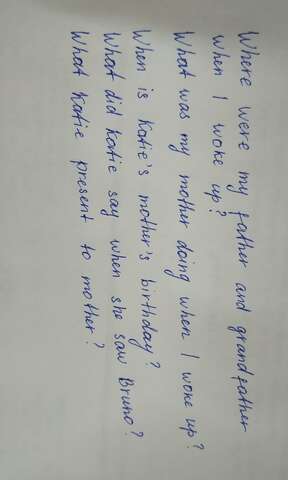 Where were my father and grandfather
when I woke up?
What was my mother doing when I woke up?
When is Katie's mother's birthday?
What did Katie say when she saw Bruno?
What Katie present to mother?